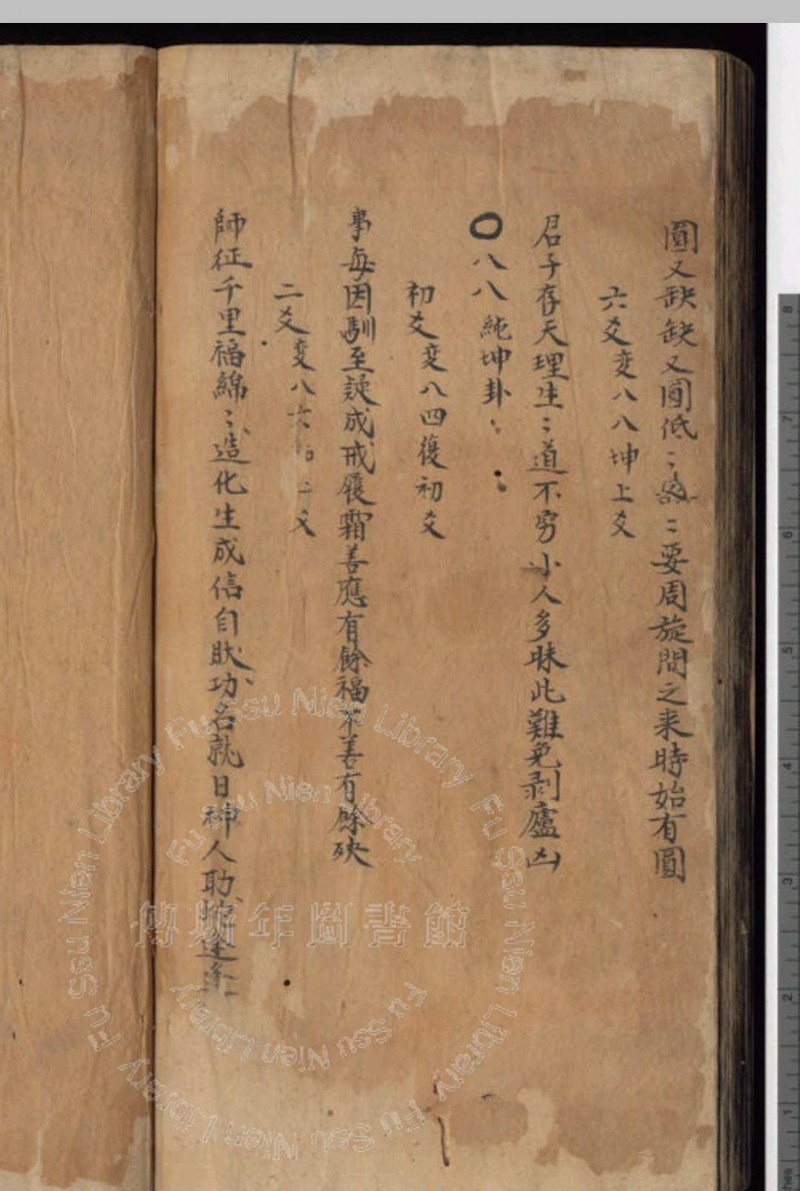 圓又缺缺又圓低ミ ミ要周旋問之来時始有圓
六爻変八八坤上爻
君子存天理生ミ道不窮小人多昧此難免剥廬凶
〇八八純坤卦
初爻変八四復初爻
事每因馴至談成戒履霜善應有餘福不善有餘殃
二爻変八六 二爻
師征千里福綿ミ造化生成信自 功名就日神人助
傅斯年圖書館
Fu Ssu Nien Library Fu Ssu Nien Library Fu Ssu Nien Library Fu Ssu Nien Library
Fu Ssu Nien Library
Fu Ssu Nien Library
8
7
6
5
4
3
2
1
inches